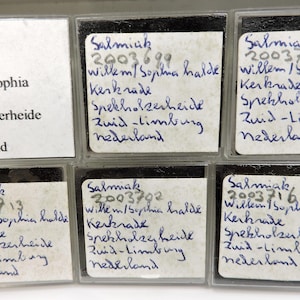 ophia
erheide
d
Salmiak
2003699
Willem/Sophia halde
Kerkrade
Spekholzerheide
Zuid-Limburg
nederland
Salmiak
Willem/S
Kerkrade
Spekholz
Zuid-L
nederlan
13
ophia halde
erheide
burg
Salmiak
2003702
Willem/Sophia halde
Kerkrade
Spekholzerheide
Zuid-Limburg
nederland
Salmiak
Willem/Sophia
Kerkrade
Spekholzerh
Zuid-Lim
nederland